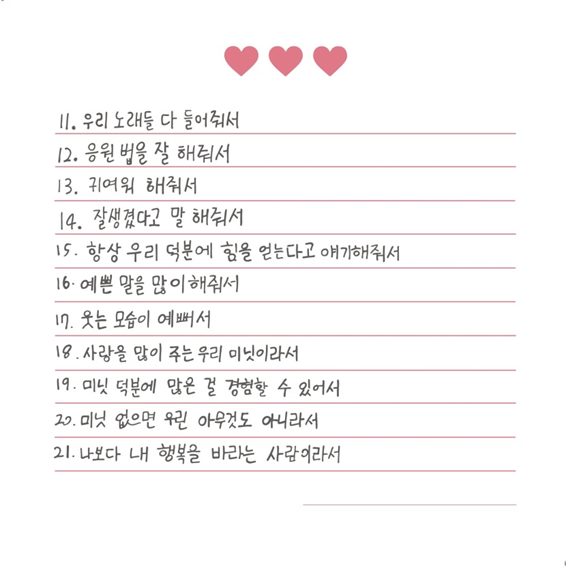 11. 우리 노래들 다 들어줘서
12. 응원법을 잘 해줘서
13. 귀여워 해줘서
14. 잘생겼다고 말 해줘서
15. 항상 우리 덕분에 힘을 얻는다고 얘기해줘서
16. 예쁜 말을 많이 해줘서
17. 웃는 모습이 예뻐서
18. 사랑을 많이 주는 우리 미닛이라서
19. 미닛 덕분에 많은 걸 경험할 수 있어서
20. 미닛 없으면 우린 아무것도 아니라서
21. 나보다 내 행복을 바라는 사람이라서